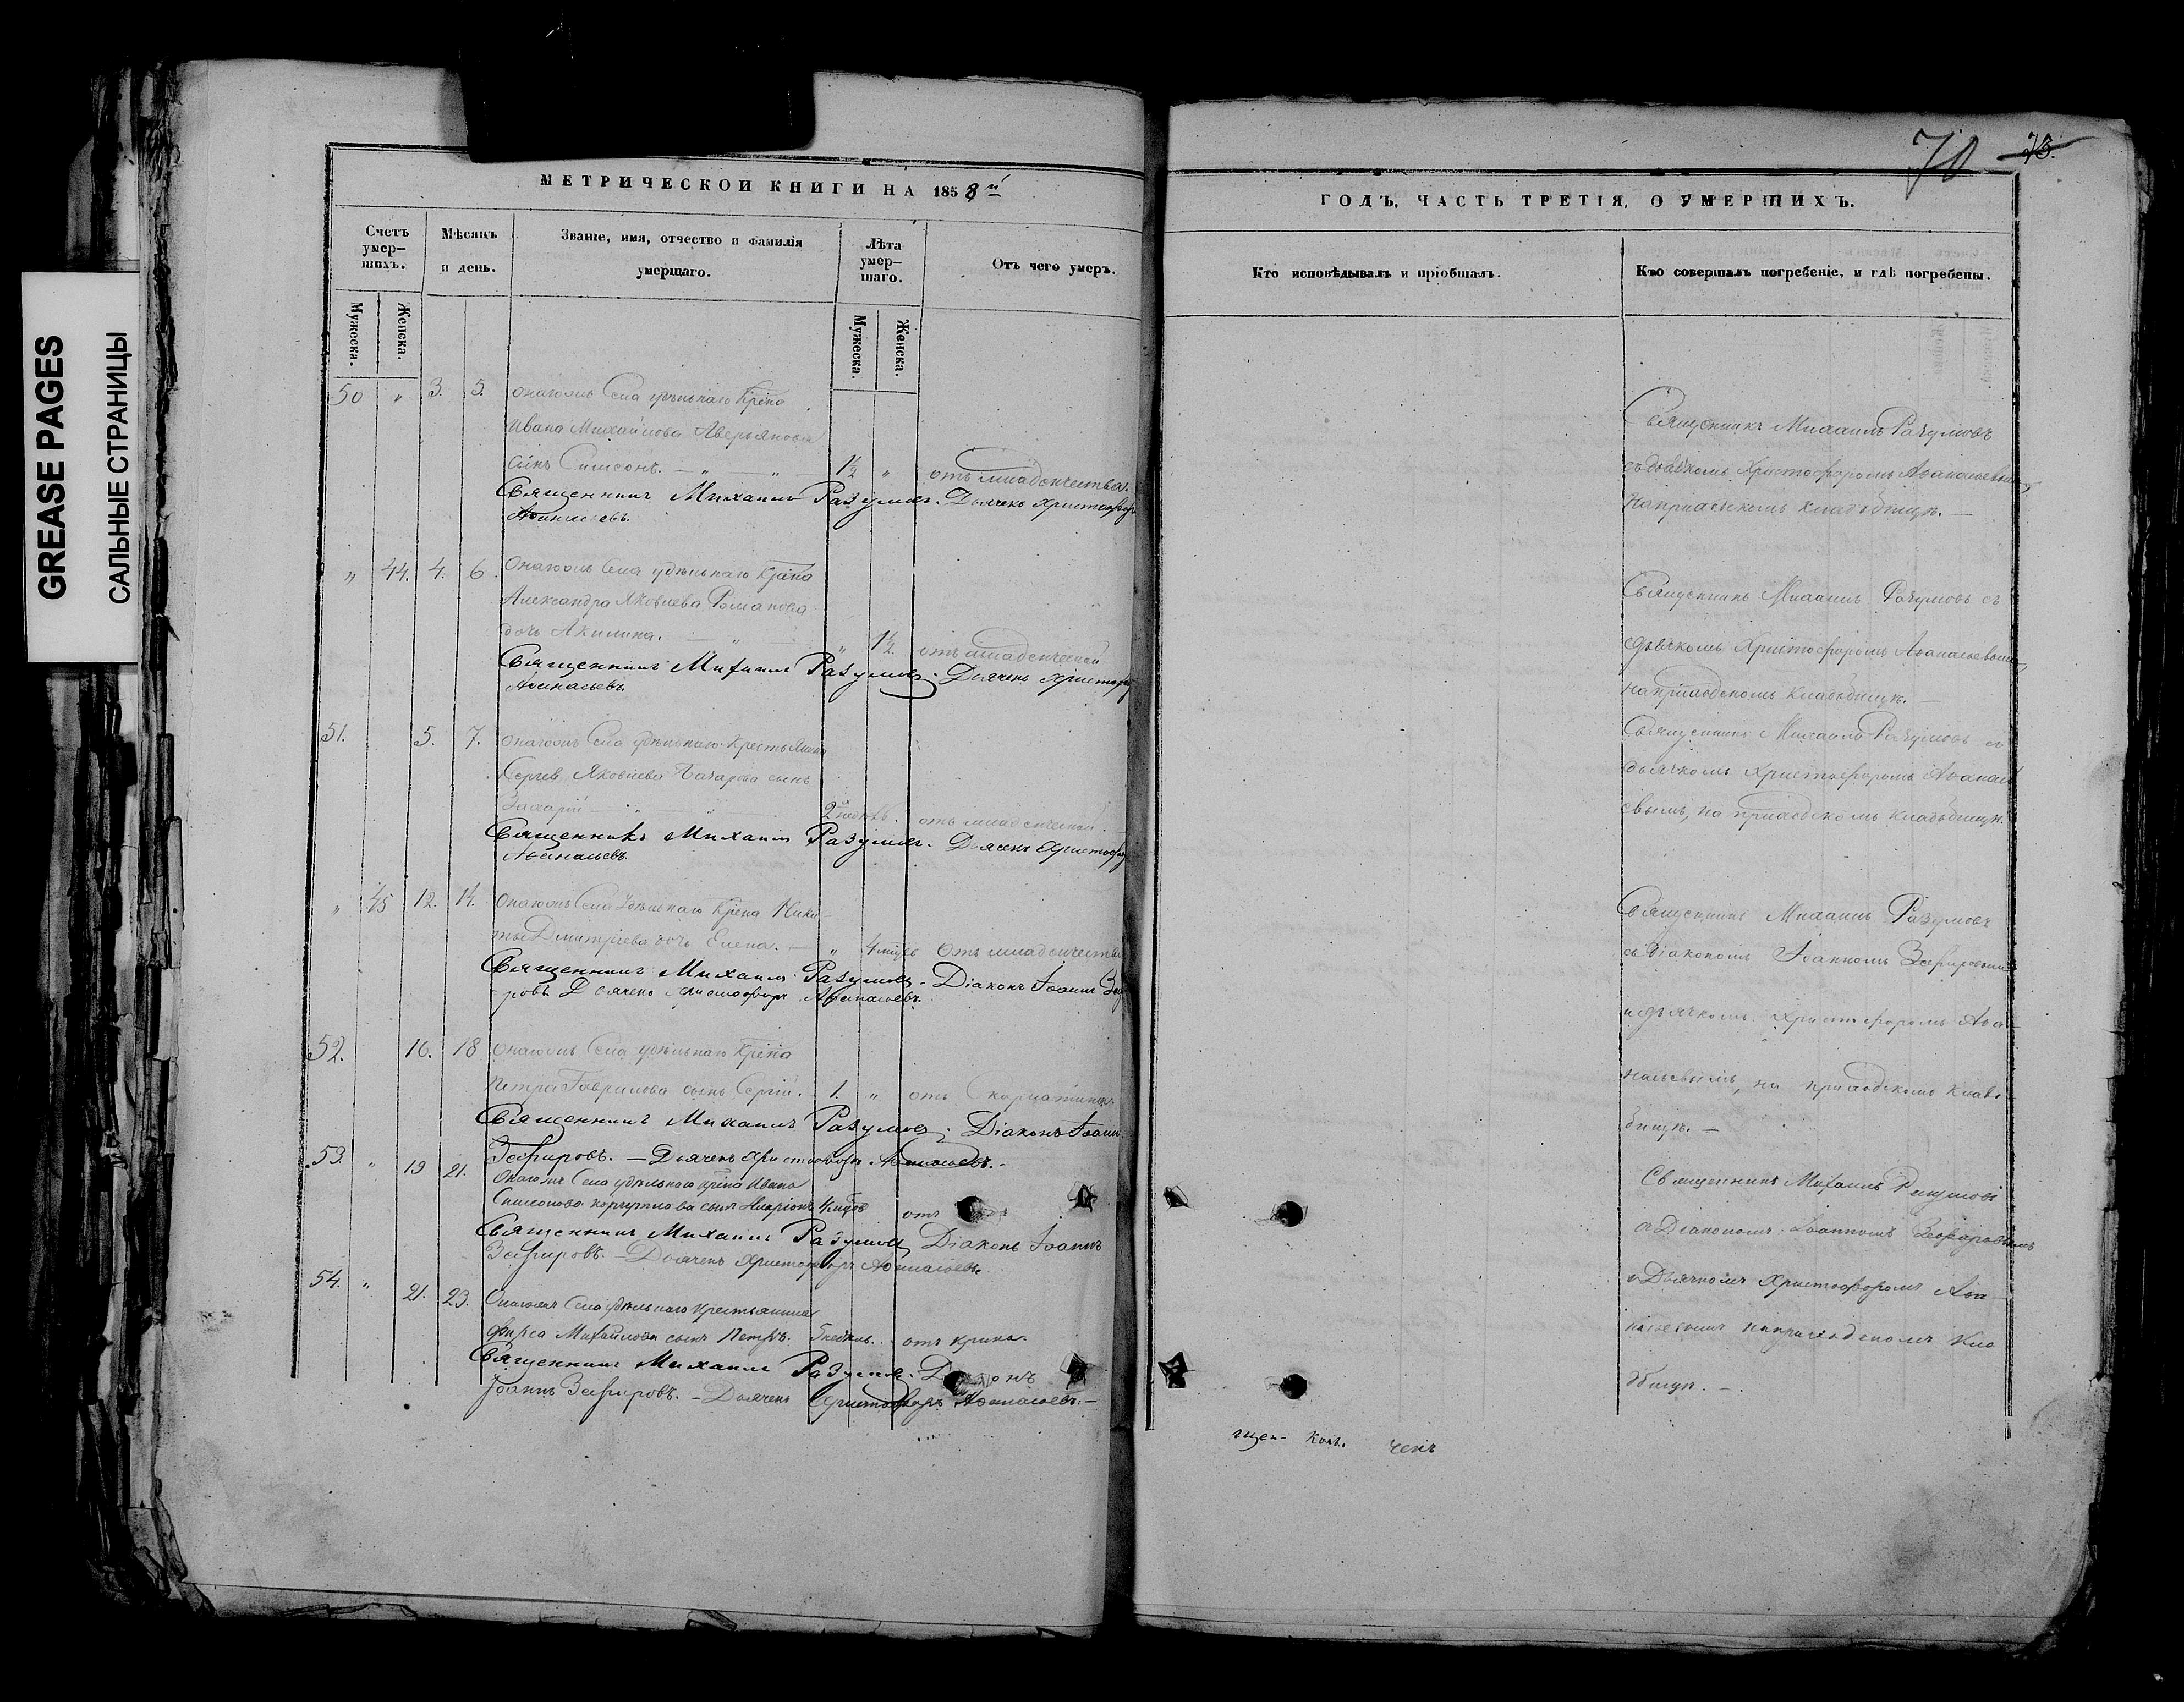 GREASE PAGES
САЛЬНЫЕ СТРАНИЦЫ
МЕТРИЧЕСКОЙ КНИГИ НА 1858 й
Счетъ умер-шихъ.
Мужеска.
Женска.
Мѣсяцъ и день.
Званіе, имя, отчество и фамилія умершаго.
Лѣта умер-шаго.
Мужеска.
Женска.
Отъ чего умеръ.
50 " 3. 5. Села удѣльнаго Кр̃на
Ивана Михайлова Аверьянова
сынъ Симеонъ. — " — " 1½ " отъ младенчества.
Священникъ Михаилъ Разумовъ. Дьячекъ Христофоръ
Аѳанасьевъ.
" 44. 4. 6. Села удѣльнаго Кр̃на
Александра Яковлева Романова
дочь Акилина. — " — " 1½. отъ младенческой
Священникъ Михаилъ Разумовъ. Дьячекъ Христофоръ
Аѳанасьевъ.
51. 5. 7. Села удѣльнаго крестьянина
Сергѣя Яковлева сынъ
Захарій — " — 2 недѣль. отъ младенческой.
Священникъ Михаилъ Разумовъ. Дьячекъ Христофоръ
Аѳанасьевъ.
" 45 12. 14. Села Удѣльнаго Кр̃на Ники-
ты Дмитріева дочь Елена. — " 4 мцвъ Отъ младенчества
Священникъ Михаилъ Разумовъ. Діаконъ Іоаннъ Зефи
ровъ. Дьячекъ Христофоръ Аѳанасьевъ.
52. 16. 18 Села удѣльнаго Кр̃на
Петра Гаврилова сынъ Сергій. 1. " отъ скарлатины.
Священникъ Михаилъ Разумовъ. Діаконъ Іоаннъ
Зефировъ. — Дьячекъ Христофоръ Аѳанасьевъ. —
53. " 19 21. Села удѣльнаго кр̃на Ивана
Симеонова сынъ Иларіонъ отъ
Священникъ Михаилъ Разумовъ, Діаконъ Іоаннъ
Зефировъ. — Дьячекъ Христофоръ Аѳанасьевъ.
54. " 21. 23. Села удѣльнаго крестьянина
Фирса Михайлова сынъ Петръ. недѣль. отъ крика.
Священникъ Михаилъ Разумовъ. Діаконъ
Іоаннъ Зефировъ. — Дьячекъ Христофоръ Аѳанасьевъ. —
70 73.
ГОДЪ, ЧАСТЬ ТРЕТІЯ, О УМЕРШИХЪ.
Кто исповѣдывалъ и пріобщалъ.
Кто совершалъ погребеніе, и гдѣ погребены.
Священникъ Михаилъ Разумовъ
съ дьячкомъ Христофоромъ Аѳанасьевымъ,
на приходскомъ кладбищѣ. —
Священникъ Михаилъ Разумовъ съ
дьячкомъ Христофоромъ Аѳанасьевымъ,
на приходскомъ кладбищѣ. —
Священникъ Михаилъ Разумовъ съ
дьячкомъ Христофоромъ Аѳанась
евымъ, на приходскомъ кладбищѣ.
Священникъ Михаилъ Разумовъ
съ Діакономъ Іоанномъ Зефировымъ
и дьячкомъ Христофоромъ Аѳа-
насьевымъ, на приходскомъ клад-
бищѣ. —
Священникъ Михаилъ Разумовъ
съ Діакономъ Іоанномъ Зефировымъ
и Дьячкомъ Христофоромъ Аѳа-
насьевымъ на приходскомъ кла
дбищѣ. —.
щен- конъ. чекъ